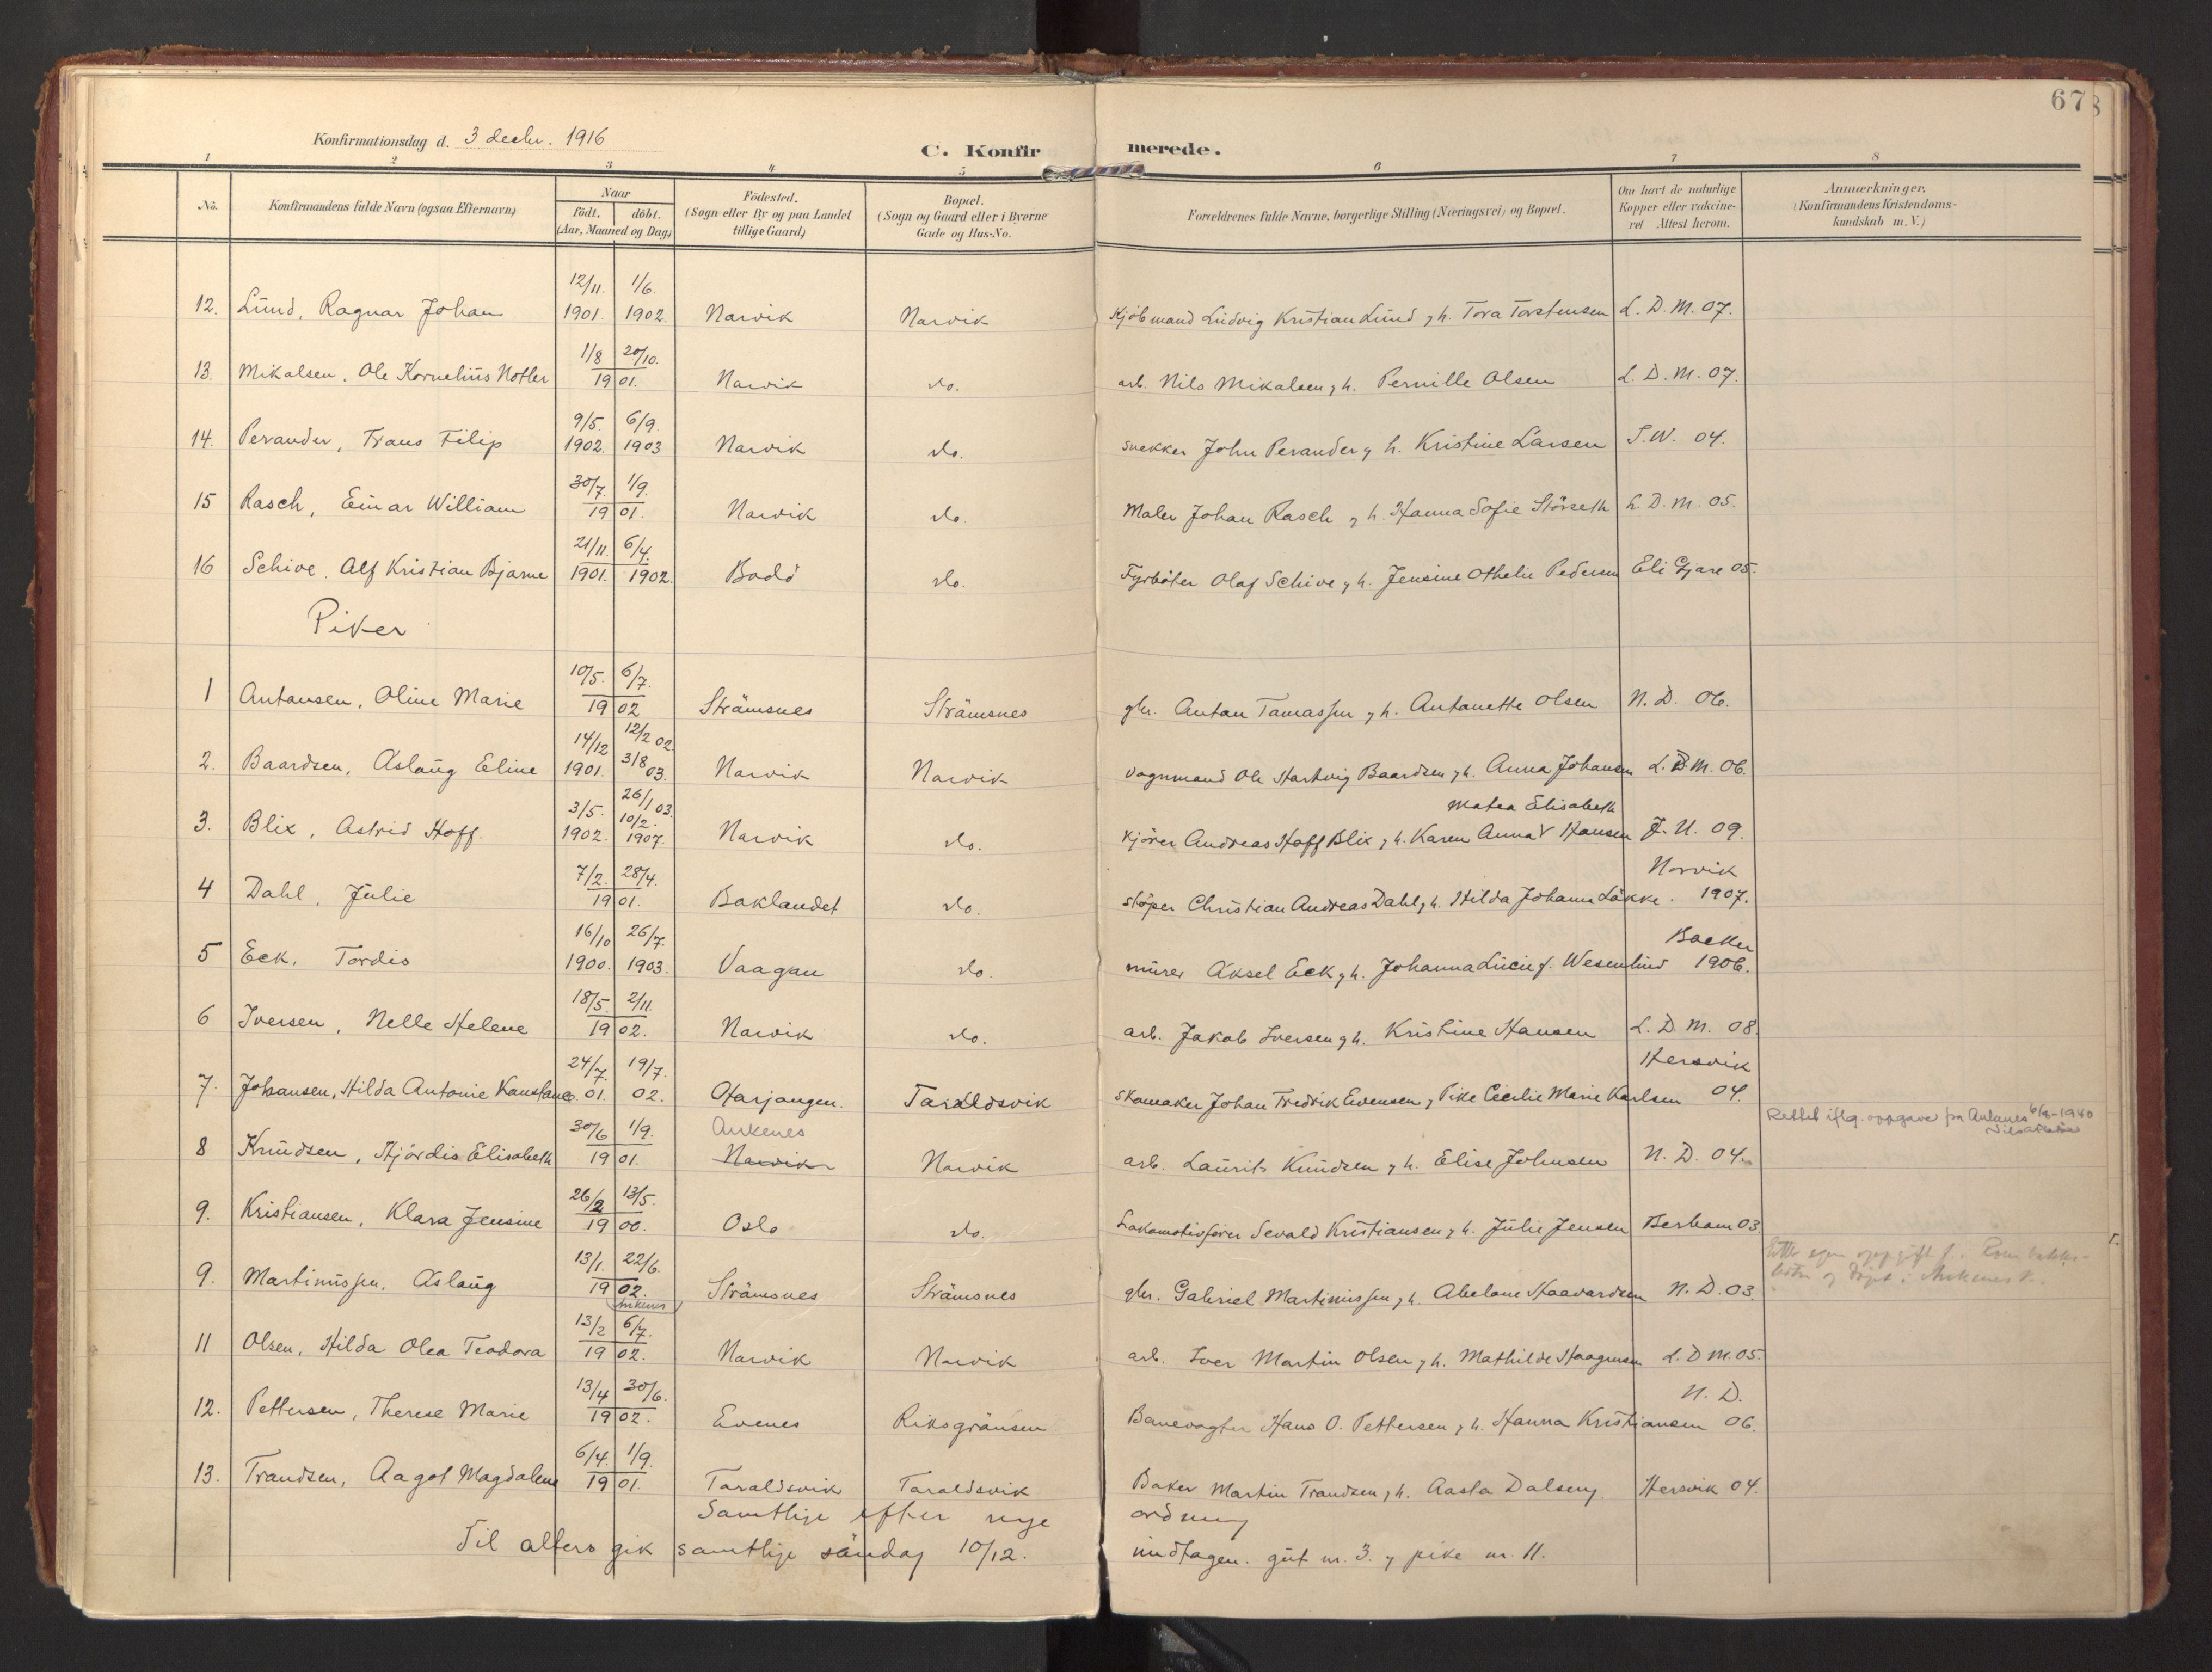 67
Konfirmationsdag d. 3 decbr. 1916
C. Konfirmerede.
1 2 3 4 5 6 7 8
No. Konfirmandens fulde Navn (ogsaa Efternavn)
Naar født. døbt. (Aar, Maaned og Dag)
Fødested. (Sogn eller By og paa Landet tillige Gaard)
Bopæl. (Sogn og Gaard eller i Byerne Gade og Hus-No.
Forældrenes fulde Navne, borgerlige Stilling (Næringsvei) og Bopæl.
Om havt de naturlige Kopper eller vakcineret Attest herom.
Anmærkninger. (Konfirmandens Kristendomskundskab m. V.)
12. Lund, Ragnar Johan 12/11. 1901. 1/6. 1902. Narvik Narvik Kjøbmand Ludvig Kristian Lund, h. Tora Torstensen L. D. M. 07.
13. Mikalsen, Ole Kornelius Notler 1/8 20/10. 1901. Narvik do. arb. Nils Mikalsen, h. Pernille Olsen L. D. M. 07.
14. Perander, Frans Filip 9/5. 1902. 6/9. 1903 Narvik do. snekker John Perander, h. Kristine Larsen S. W. 04.
15 Rasch, Einar William 30/7. 1/9. 1901. Narvik do. Maler Johan Rasch, h. Hanna Sofie Störseth L. D. M. 05.
16 Schive, Alf Kristian Bjarne 21/11. 1901. 6/4. 1902. Bodö do. Fyrböter Olaf Schive, h. Jensine Othelie Pedersen Eli Gjare 05.
Piker
1 Antonsen, Oline Marie 10/5. 6/7. 1902 Strämsnes Strämsnes gbr. Anton Tomassen, h. Antonette Olsen N. D. 06.
2. Baardsen, Aslaug Eline 14/12 1901. 12/2 02. 3/8 03. Narvik Narvik vognmand Ole Hartvig Baardsen, h. Anna Johansen L. D. M. 06.
3. Blix, Astrid Hoff. 3/5. 1902. 26/1 03. 10/2. 1907. Narvik do. kjörer Andreas Hoff Blix, h. Karen Anna V Hansen J. U. 09.
Matea Elisabeth
4 Dahl, Julie 7/2. 28/4. 1901. Baklandet do. støper Christian Andreas Dahl, h. Hilda Johanna Läkke. Norvik 1907.
5 Eck, Tordis 16/10 1900. 26/7. 1903. Vaagan do. murer Aksel Eck, h. Johanna Lucie f. Wesenlund Backer 1906.
6 Iversen, Nelle Helene 18/5. 2/11. 1902. Narvik do. arb. Jakob Iversen, h. Kristine Hansen L. D. M. 08.
7. Johansen, Hilda Antonie Konstance 24/7. 01. 19/7. 02. Ofarjangen. Taraldsvik skomaker Johan Fredrik Evensen, Pike Cecilie Marie Karlsen Hersvik 04.
8 Knudsen, Hjördis Elisabeth 30/6 1/9. 1901. Ankenes Narvik Narvik arb. Laurits Knudsen, h. Elise Johnsen N. D. 04. Rettet iflg. oppgave fra Ankenes 6/9-1940
9. Kristiansen, Klara Jensine 26/2 13/5. 1900. Oslo do. Lokomotivfører Sevald Kristiansen, h. Julie Jensen Berham 03
9. Martinussen, Aslaug 13/1. 22/6. 1902. Ankenes Strämsnes Strämsnes gbr. Gabriel Martinussen, h. Abelone Haavardsen N. D. 03.
11 Olsen, Hilda Olea Teodora 13/2 6/7. 1902. Narvik Narvik arb. Iver Martin Olsen, h. Mathilde Haagensen L. D. M. 05.
12. Pettersen, Therese Marie 13/4 30/6. 1902. Evenes Riksgränsen Banevogter Hans O. Pettersen, h. Hanna Kristiansen N. D. 06.
13. Trandsen, Aagot Magdalene 6/4. 1/9. 1901. Taraldsvik Taraldsvik Baker Martin Trandsen, h. Aasta Dalseng. Hersvik 04.
Samtlige efter nye ordning
Til alters gik samtlige söndag 10/12. undtagen. gut nr. 3. og pike nr. 11.